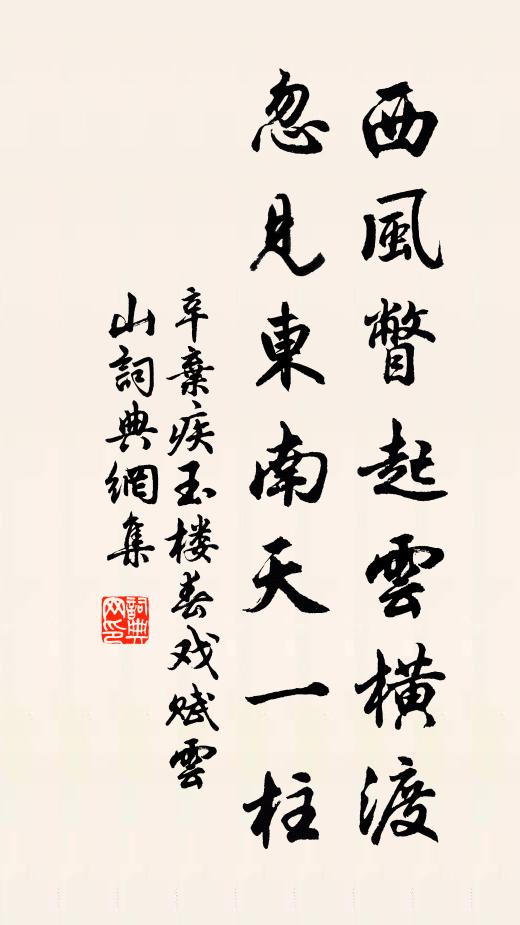 西風瞥起雲橫渡
忽見東南天一柱
辛棄疾玉楼春戏赋雲
山詞典網集
詞典
网印